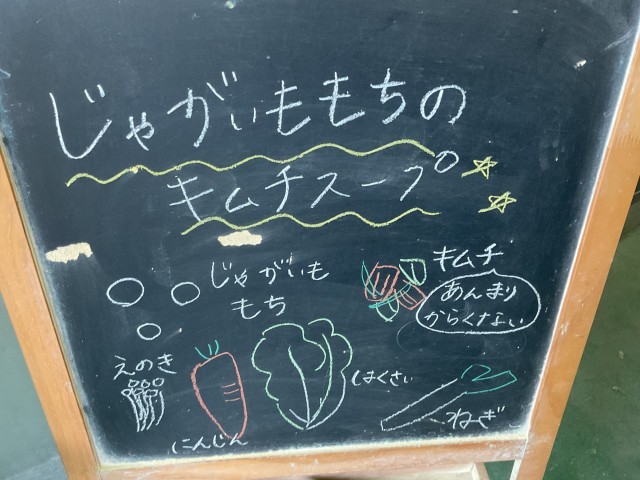 じゃがいももちの
キムチスープ
じゃがいも
もち
キムチ
あんまり
からくない
えのき
にんじん
はくさい
ねぎ